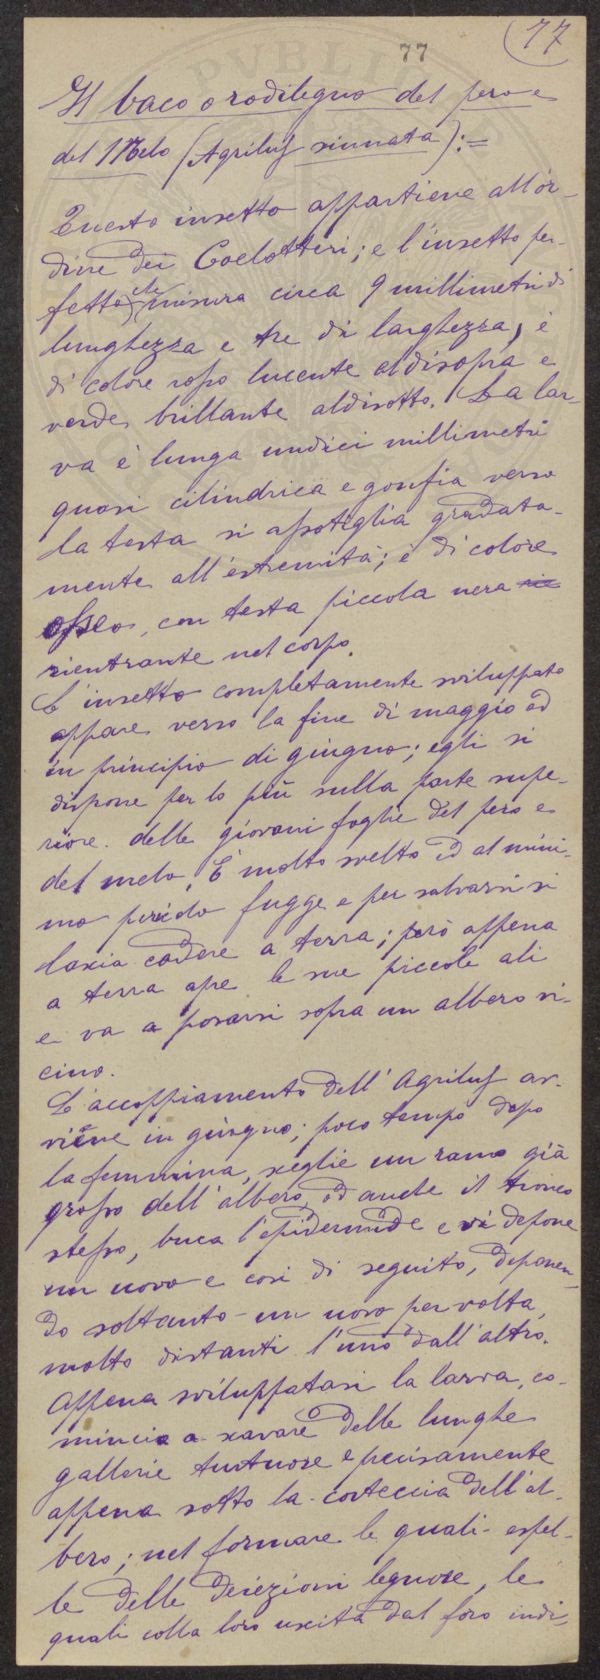 77
77
Il baco o rodilegno del pero e
del Melo (Agriluſ sinuata):=
Questo insetto appartiene all'or-
dine dei Coelotteri; e l'insetto per-
fetto che misura circa 9 millimetri di
lunghezza e tre di larghezza, è
di colore roſso lucente aldisopra e
verde brillante aldisotto. La lar-
va è lunga undici millimetri
quasi cilindrica e gonfia verso
la testa si aſsotiglia gradata-
mente all'estremità; è di colore
oſseo, con testa piccola nera
rientrante nel corpo.
L'insetto completamente sviluppato
appare verso la fine di maggio od
in principio di giugno; egli si
dispone per lo più sulla parte supe-
riore delle giovani foglie del pero e
del melo. È molto svelto ed al mini-
mo pericolo fugge e per salvarsi si
lascia cadere a terra; però appena
a terra apre le sue piccole ali
e va a posarsi sopra un albero vi-
cino.
L'accoppiamento dell'Agriluſ av-
viene in giugno; poco tempo dopo
la femmina, sceglie un ramo già
groſso dell'albero, od anche il tronco
steſso, buca l'epidermide e vi depone
un uovo e così di seguito, deponen-
do soltanto un uovo per volta,
molto distanti l'uno dall'altro.
Appena sviluppatasi la larva, co-
mincia a scavare delle lunghe
gallerie tortuose e precisamente
appena sotto la corteccia dell'al-
bero; nel formare le quali espel-
le delle deiezioni legnose, le
quali colla loro uscita dal foro indi-